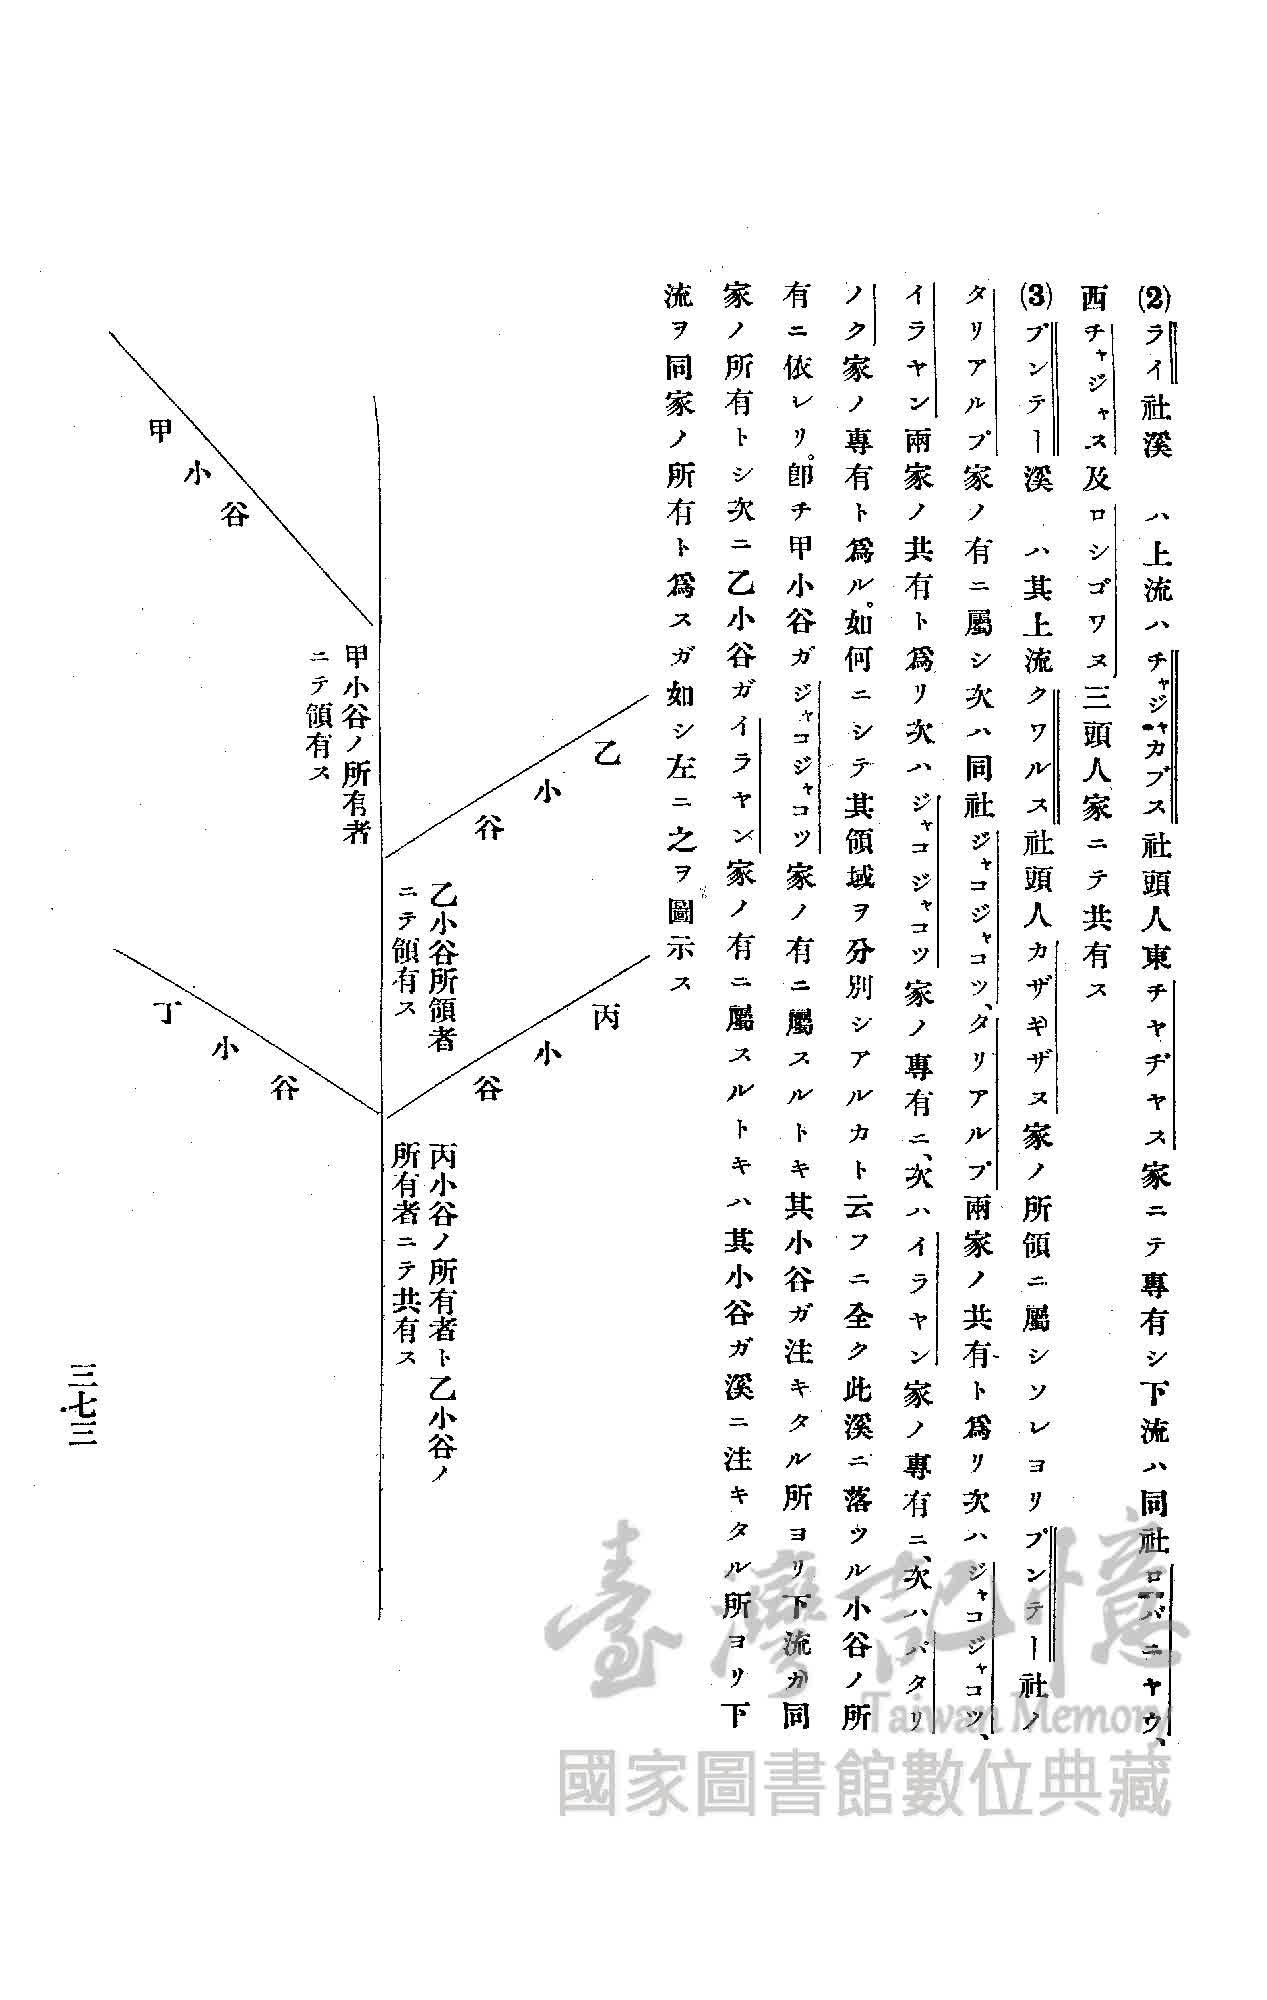 (2)ライ社溪　ハ上流ハチャジャカブス社頭人東チヤヂヤス家ニテ專有シ下流ハ同社ロバニヤウ、
西チャジャス及ロシゴワヌ三頭人家ニテ共有ス
(3)ブンテー溪　ハ其上流クワルス社頭人カザギザヌ家ノ所領ニ屬シソレヨリブンテー社ノ
タリアルプ家ノ有ニ屬シ次ハ同社ジャコジャコツ、タリアルプ兩家ノ共有ト爲リ次ハジャコジャコツ、
イラヤン兩家ノ共有ト爲リ次ハジャコジャコツ家ノ專有ニ、次ハイラヤン家ノ專有ニ、次ハパタリ
ノク家ノ專有ト爲ル。如何ニシテ其領域ヲ分別シアルカト云フニ全ク此溪ニ落ツル小谷ノ所
有ニ依レリ。卽チ甲小谷ガジャコジャコツ家ノ有ニ屬スルトキ其小谷ガ注キタル所ヨリ下流ガ同
家ノ所有トシ次ニ乙小谷ガイラヤン家ノ有ニ屬スルトキハ其小谷ガ溪ニ注キタル所ヨリ下
流ヲ同家ノ所有ト爲スガ如シ左ニ之ヲ圖示ス
乙小谷
丙小谷
乙小谷所領者
ニテ領有ス
丙小谷ノ所有者ト乙小谷ノ
所有者ニテ共有ス
甲小谷ノ所有者
ニテ領有ス
甲小谷
丁小谷
三七三
臺灣記憶
Taiwan Memory
國家圖書館數位典藏